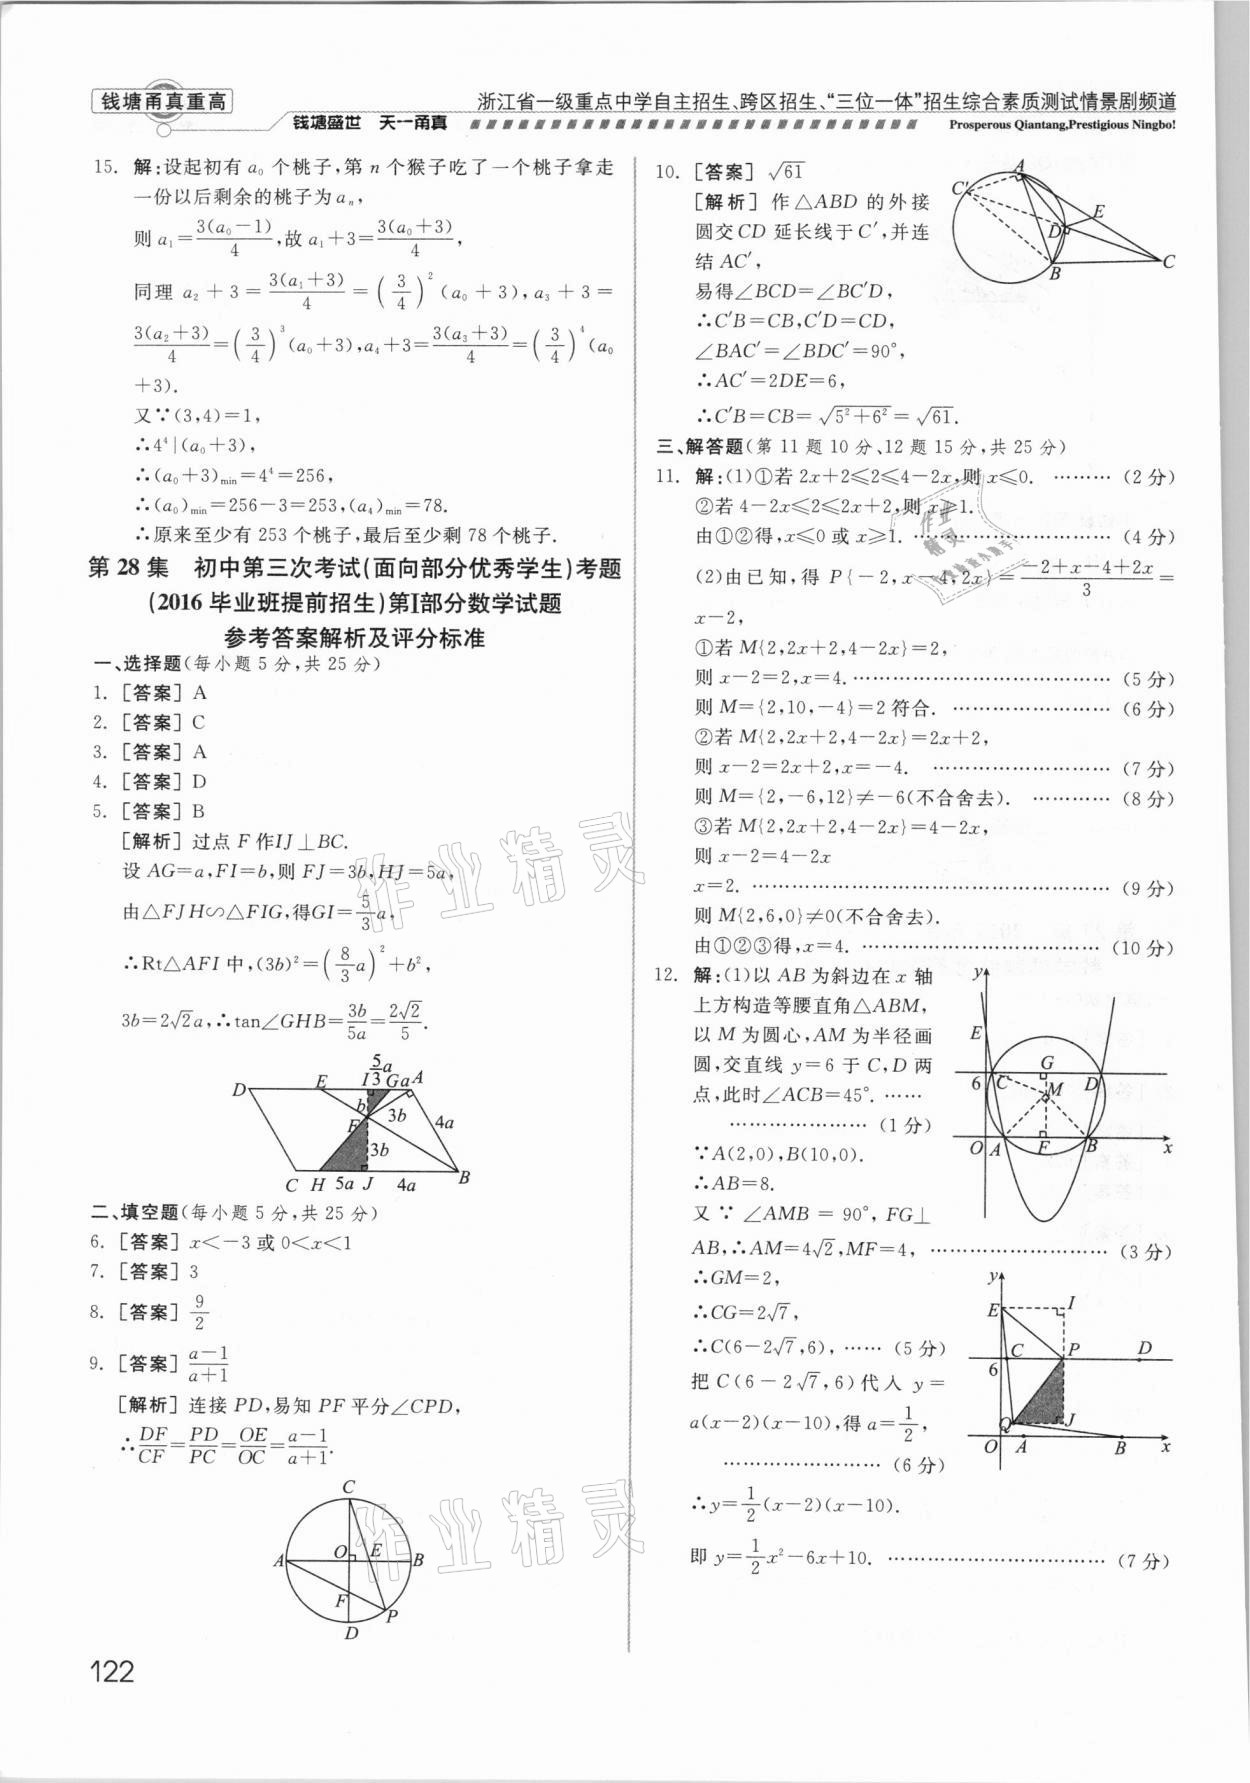 钱塘甬真重高
浙江省一级重点中学自主招生、跨区招生、“三位一体”招生综合素质测试情景剧频道
钱塘盛世 天一甬真
Prosperous Qiantang,Prestigious Ningbo!
15. 解:设起初有 a₀ 个桃子,第 n 个猴子吃了一个桃子拿走
一份以后剩余的桃子为 aₙ,
则 a₁=3(a₀−1)/4,故 a₁+3=3(a₀+3)/4,
同理 a₂+3=3(a₁+3)/4=(3/4)²(a₀+3),a₃+3=
3(a₂+3)/4=(3/4)³(a₀+3),a₄+3=3(a₃+3)/4=(3/4)⁴(a₀
+3).
又∵(3,4)=1,
∴4⁴|(a₀+3),
∴(a₀+3)min=4⁴=256,
∴(a₀)min=256−3=253,(a₄)min=78.
∴原来至少有 253 个桃子,最后至少剩 78 个桃子.
第 28 集 初中第三次考试(面向部分优秀学生)考题
(2016 毕业班提前招生)第Ⅰ部分数学试题
参考答案解析及评分标准
一、选择题(每小题 5 分,共 25 分)
1. [答案] A
2. [答案] C
3. [答案] A
4. [答案] D
5. [答案] B
[解析] 过点 F 作IJ⊥BC.
设 AG=a,FI=b,则 FJ=3b,HJ=5a,
由△FJH∽△FIG,得GI=5/3 a,
∴Rt△AFI 中,(3b)²=(8/3 a)²+b²,
3b=2√2a,∴tan∠GHB=3b/5a=2√2/5.
D E I 5/3 a G a A
b F 3b 4a
3b
C H 5a J 4a B
二、填空题(每小题 5 分,共 25 分)
6. [答案] x<−3 或 0<x<1
7. [答案] 3
8. [答案] 9/2
9. [答案] a−1/a+1
[解析] 连接 PD,易知 PF 平分∠CPD,
∴DF/CF=PD/PC=OE/OC=a−1/a+1.
C
A O E B
F P
D
122
10. [答案] √61
[解析] 作△ABD 的外接
圆交 CD 延长线于 C′,并连
结 AC′,
易得∠BCD=∠BC′D,
∴C′B=CB,C′D=CD,
∠BAC′=∠BDC′=90°,
∴AC′=2DE=6,
∴C′B=CB=√5²+6²=√61.
A C′ E D B C
三、解答题(第 11 题 10 分、12 题 15 分,共 25 分)
11. 解:(1)①若 2x+2≤2≤4−2x,则 x≤0. ……… (2 分)
②若 4−2x≤2≤2x+2,则 x≥1.
由①②得,x≤0 或 x≥1. ……………………… (4 分)
(2)由已知,得 P{−2,x−4,2x}=−2+x−4+2x/3=
x−2,
①若 M{2,2x+2,4−2x}=2,
则 x−2=2,x=4. ………………………………… (5 分)
则 M={2,10,−4}=2 符合. …………………… (6 分)
②若 M{2,2x+2,4−2x}=2x+2,
则 x−2=2x+2,x=−4. ……………………… (7 分)
则 M={2,−6,12}≠−6(不合舍去). ………… (8 分)
③若 M{2,2x+2,4−2x}=4−2x,
则 x−2=4−2x
x=2. ……………………………………………… (9 分)
则 M{2,6,0}≠0(不合舍去).
由①②③得,x=4. ……………………………… (10 分)
12. 解:(1)以 AB 为斜边在 x 轴
上方构造等腰直角△ABM,
以 M 为圆心,AM 为半径画
圆,交直线 y=6 于 C,D 两
点,此时∠ACB=45°. ……
………………… (1 分)
∵A(2,0),B(10,0).
∴AB=8.
又∵∠AMB=90°,FG⊥
AB,∴AM=4√2,MF=4, ……………………… (3 分)
∴GM=2,
∴CG=2√7,
∴C(6−2√7,6), …… (5 分)
把 C(6−2√7,6)代入 y=
a(x−2)(x−10),得 a=1/2,
…………………… (6 分)
∴y=1/2(x−2)(x−10).
即 y=1/2x²−6x+10. …………………………… (7 分)
y E 6 C G D M
O A F B x
y E I
C P D
6
Q J
O A B x
作业精灵
作业精灵
作业精灵